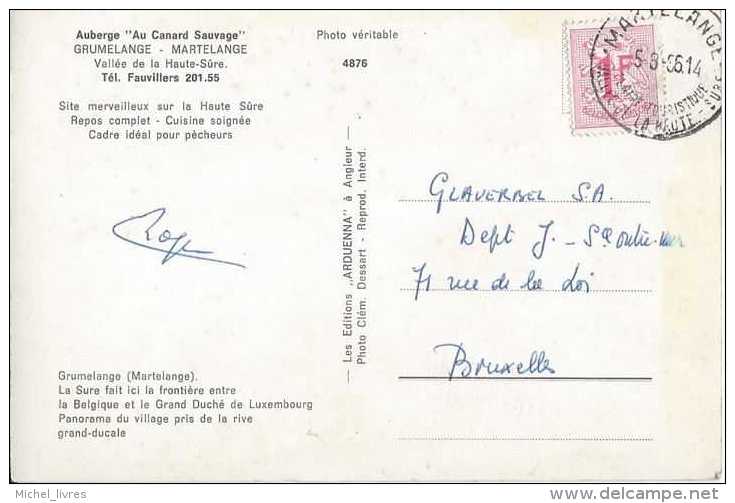 Auberge "Au Canard Sauvage"
GRUMELANGE - MARTELANGE
Vallée de la Haute-Sûre.
Tél. Fauvillers 201.55
Site merveilleux sur la Haute Sûre
Repos complet - Cuisine soignée
Cadre idéal pour pêcheurs
Photo véritable
4876
MARTELANGE
5-8-66.14
1F
— Les Editions „ARDUENNA" à Angleur —
Photo Clém. Dessart - Reprod. Interd.
GLAVERBEL S.A.
Dept J. -
71 rue de la Loi
Bruxelles
Grumelange (Martelange).
La Sure fait ici la frontière entre
la Belgique et le Grand Duché de Luxembourg
Panorama du village pris de la rive
grand-ducale
Michel_livres
©delcampe.net